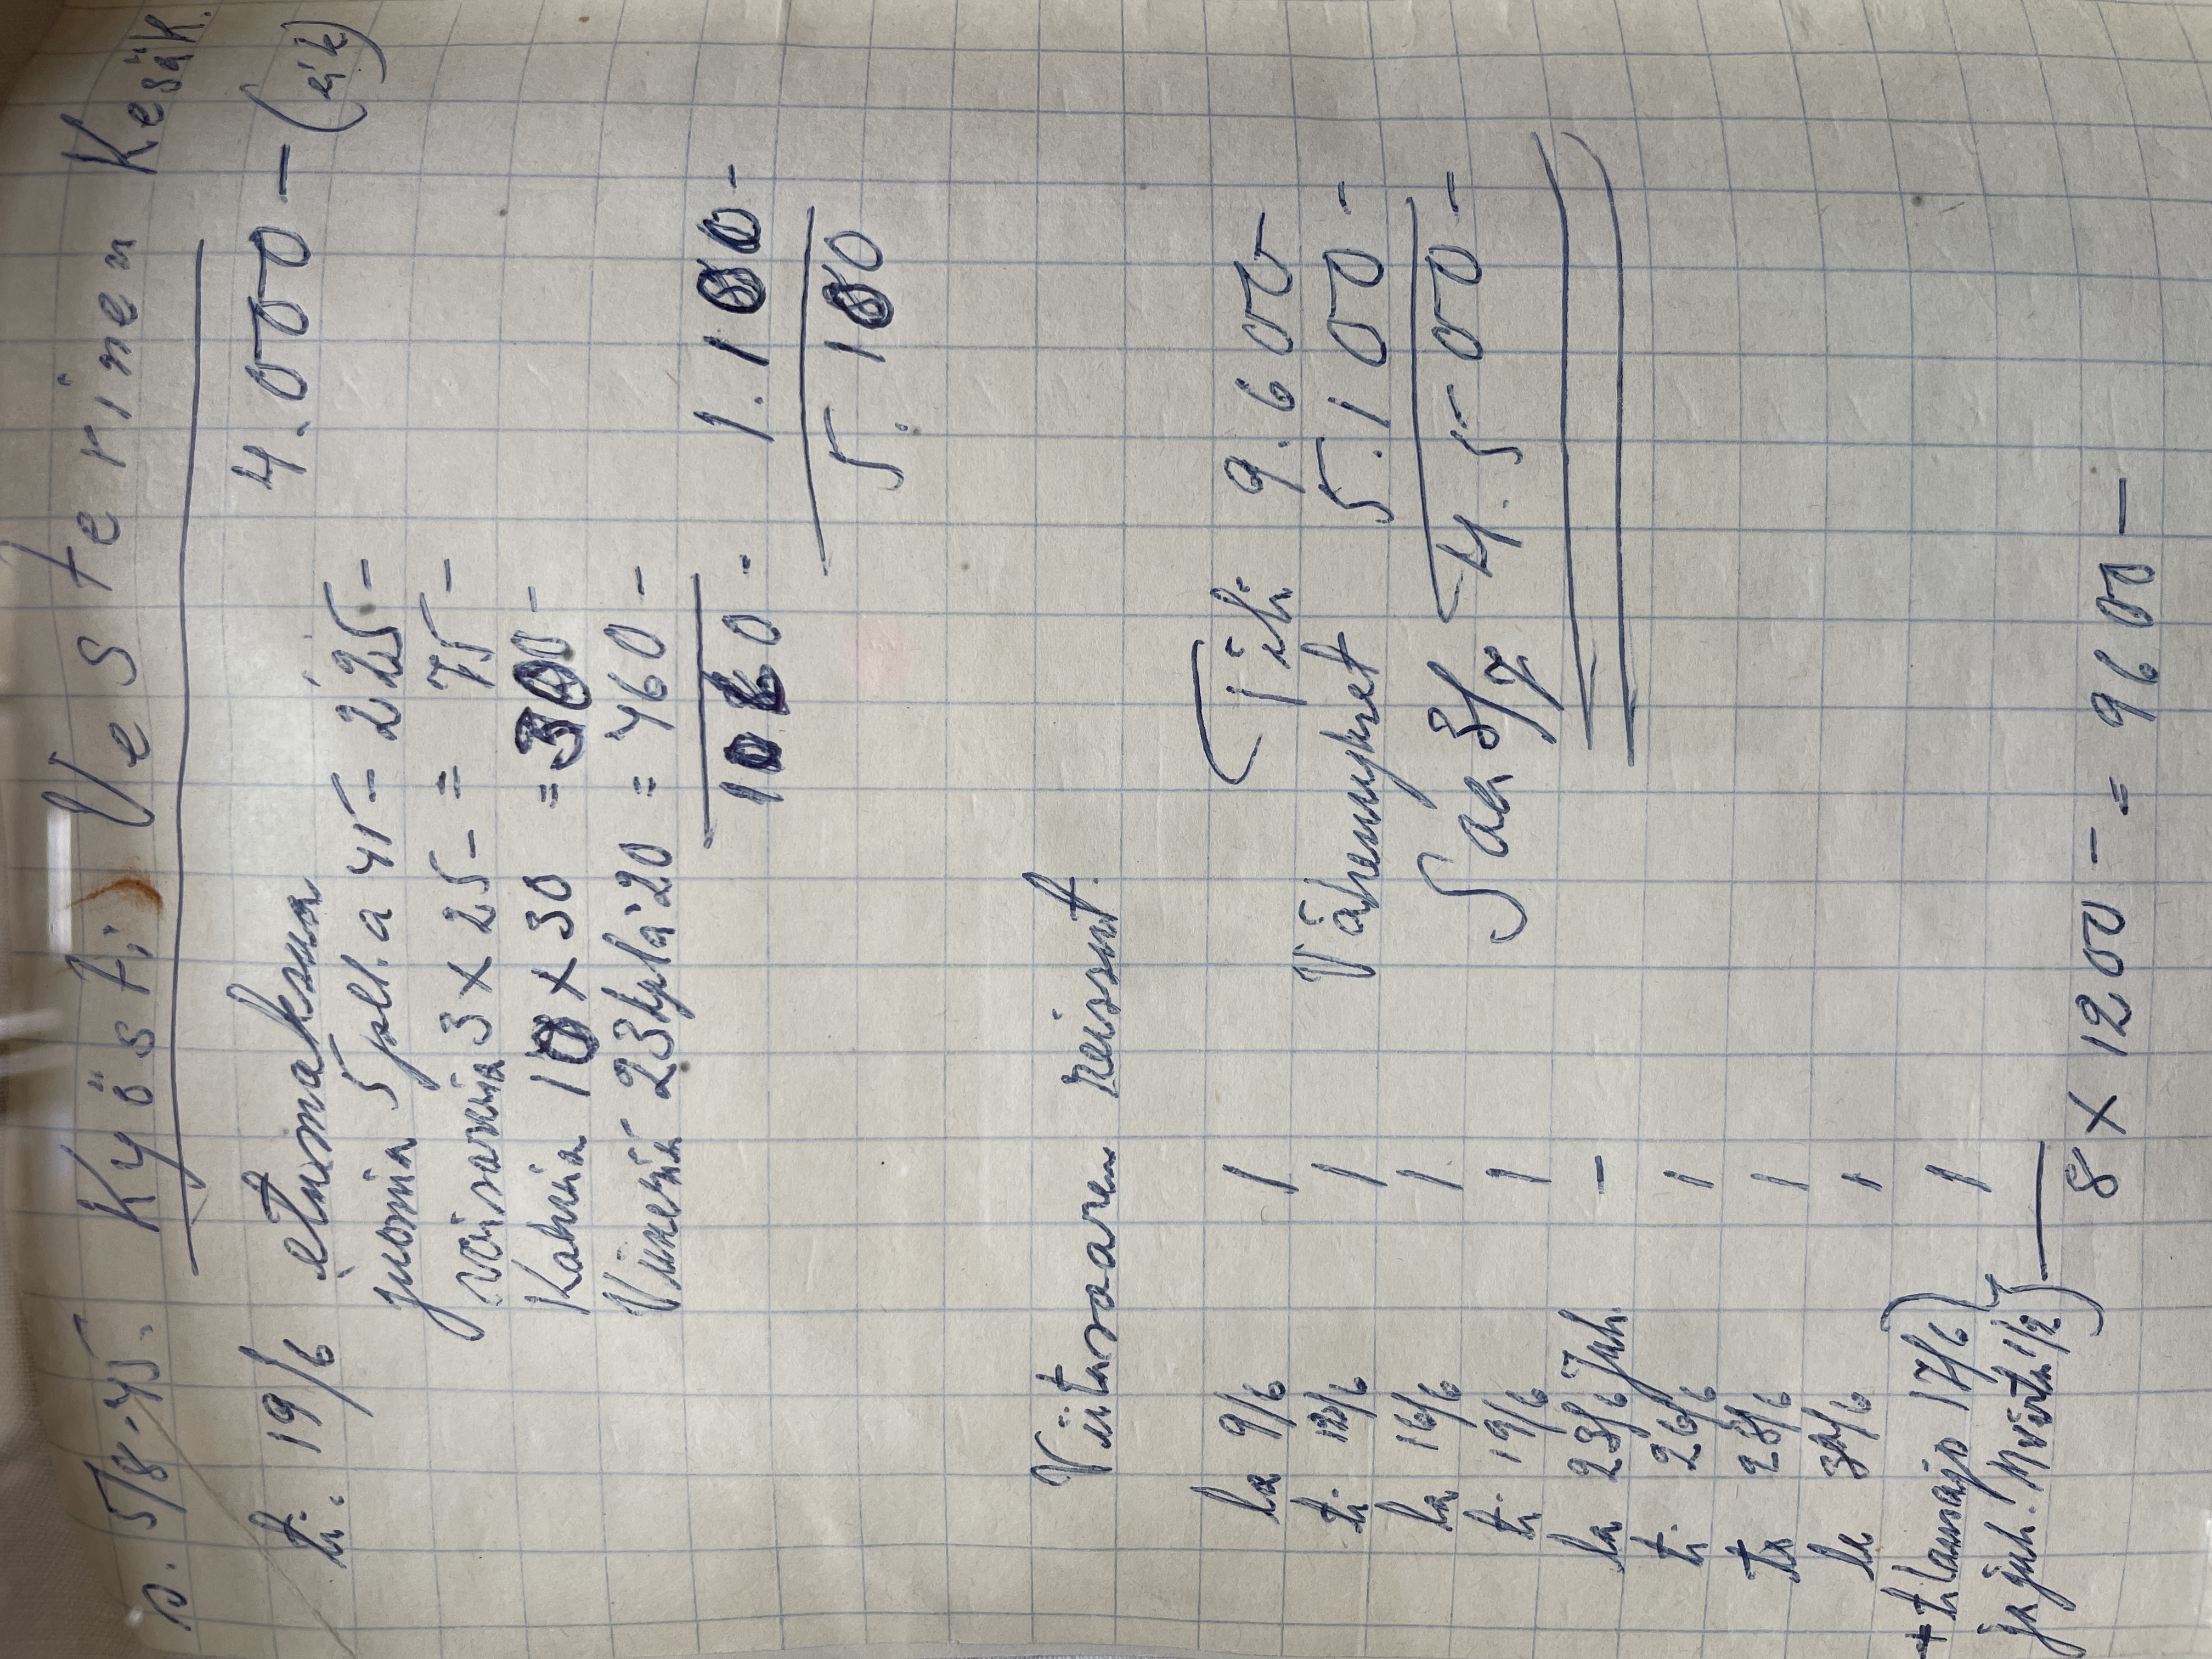 s. 5/8-45. Kyösti Vesterinen Kesäk.
ti. 19/6 etumaksua 4.000 - (eik)
juomia 5 pull. a 45 = 225 -
voisarvia 3 x 25 - = 75 -
Kahvia 10 x 30 = 300 -
Viinereitä 23 kpl à 20 = 460 -
1060. 1.100 -
5.100
Viitasaaren reissut.
la 9/6 1 Tili 9.600
ti. 12/6 1 Vähennykset 5.100 -
la 16/6 1 Saa 3/7 4.500 -
ti. 19/6 1
la 23/6 Juh. -
ti. 26/6 1
to 28/6 1
la 30/6 1
+ tilausajo 17/6) 1
ja juh. 1/2)
8 x 1200 - = 9600 -